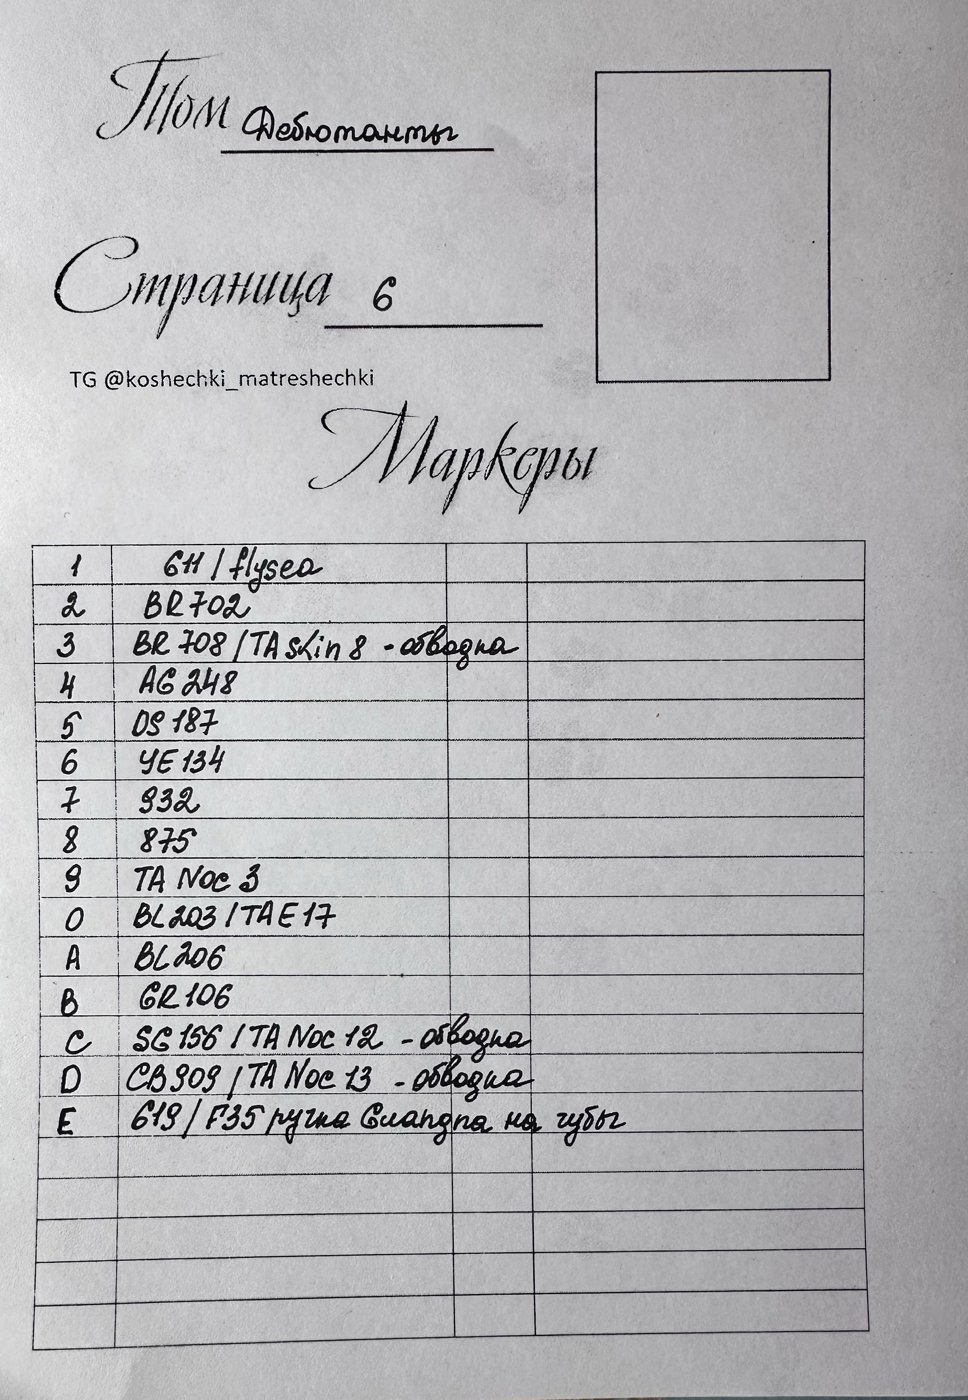 Том Дебютанты
Страница 6
TG @koshechki_matreshechki
Маркеры
1 611 / flysea
2 BR702
3 BR 708 / TA skin 8 - обводка
4 AG 248
5 DS 187
6 YE 134
7 932
8 875
9 TA Noc 3
0 BL203 / TA E 17
A BL206
B GR106
C SG 156 / TA Noc 12 - обводка
D CB909 / TA Noc 13 - обводка
E 619 / F35 ручка на губы